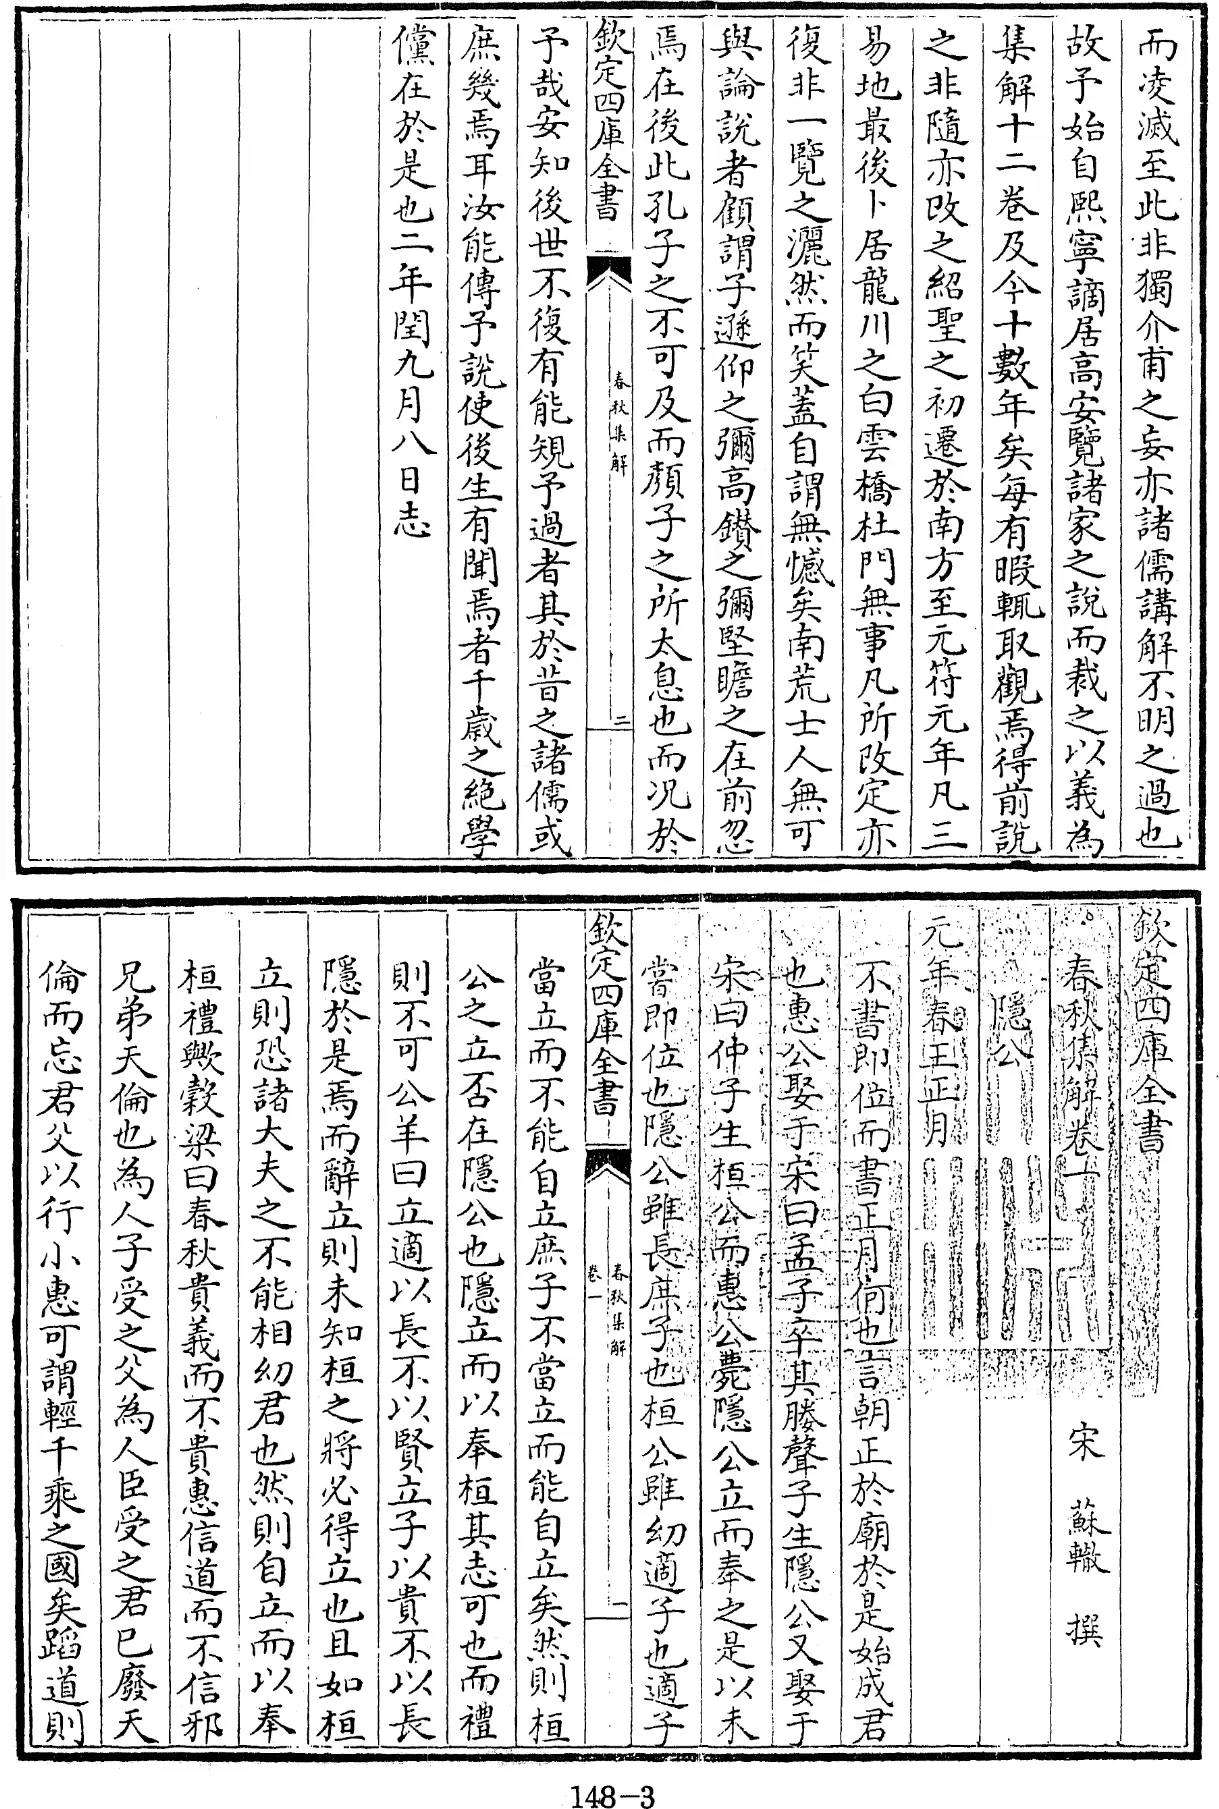 而凌滅至此非獨介甫之妄亦諸儒講解不明之過也
故予始自熙寧謫居高安覽諸家之說而裁之以義為
集解十二卷及今十數年矣每有暇輒取觀焉得前說
之非隨亦改之紹聖之初遷於南方至元符元年凡三
易地最後卜居龍川之白雲橋杜門無事凡所改定亦
復非一覽之灑然而笑蓋自謂無憾矣南荒士人無可
與論說者顧謂子遜仰之彌高鑚之彌堅瞻之在前忽
焉在後此孔子之不可及而顏子之所太息也而况於
欽定四庫全書
春秋集解
二
予哉安知後世不復有能規予過者其於昔之諸儒或
庶幾焉耳汝能傳予說使後生有聞焉者千歲之絶學
儻在於是也二年閏九月八日志
欽定四庫全書
春秋集解卷一
宋 蘇轍 撰
隱公
元年春王正月
不書即位而書正月何也言朝正於廟於是始成君
也惠公娶于宋曰孟子卒其媵聲子生隱公又娶于
宋曰仲子生桓公而惠公薨隱公立而奉之是以未
嘗即位也隱公雖長庶子也桓公雖幼適子也適子
欽定四庫全書
春秋集解
卷一
一
當立而不能自立庶子不當立而能自立矣然則桓
公之立否在隱公也隱立而以奉桓其志可也而禮
則不可公羊曰立適以長不以賢立子以貴不以長
隱於是焉而辭立則未知桓之將必得立也且如桓
立則恐諸大夫之不能相幼君也然則自立而以奉
桓禮歟榖梁曰春秋貴義而不貴惠信道而不信邪
兄弟天倫也為人子受之父為人臣受之君已廢天
倫而忘君父以行小惠可謂輕千乘之國矣蹈道則
148-3